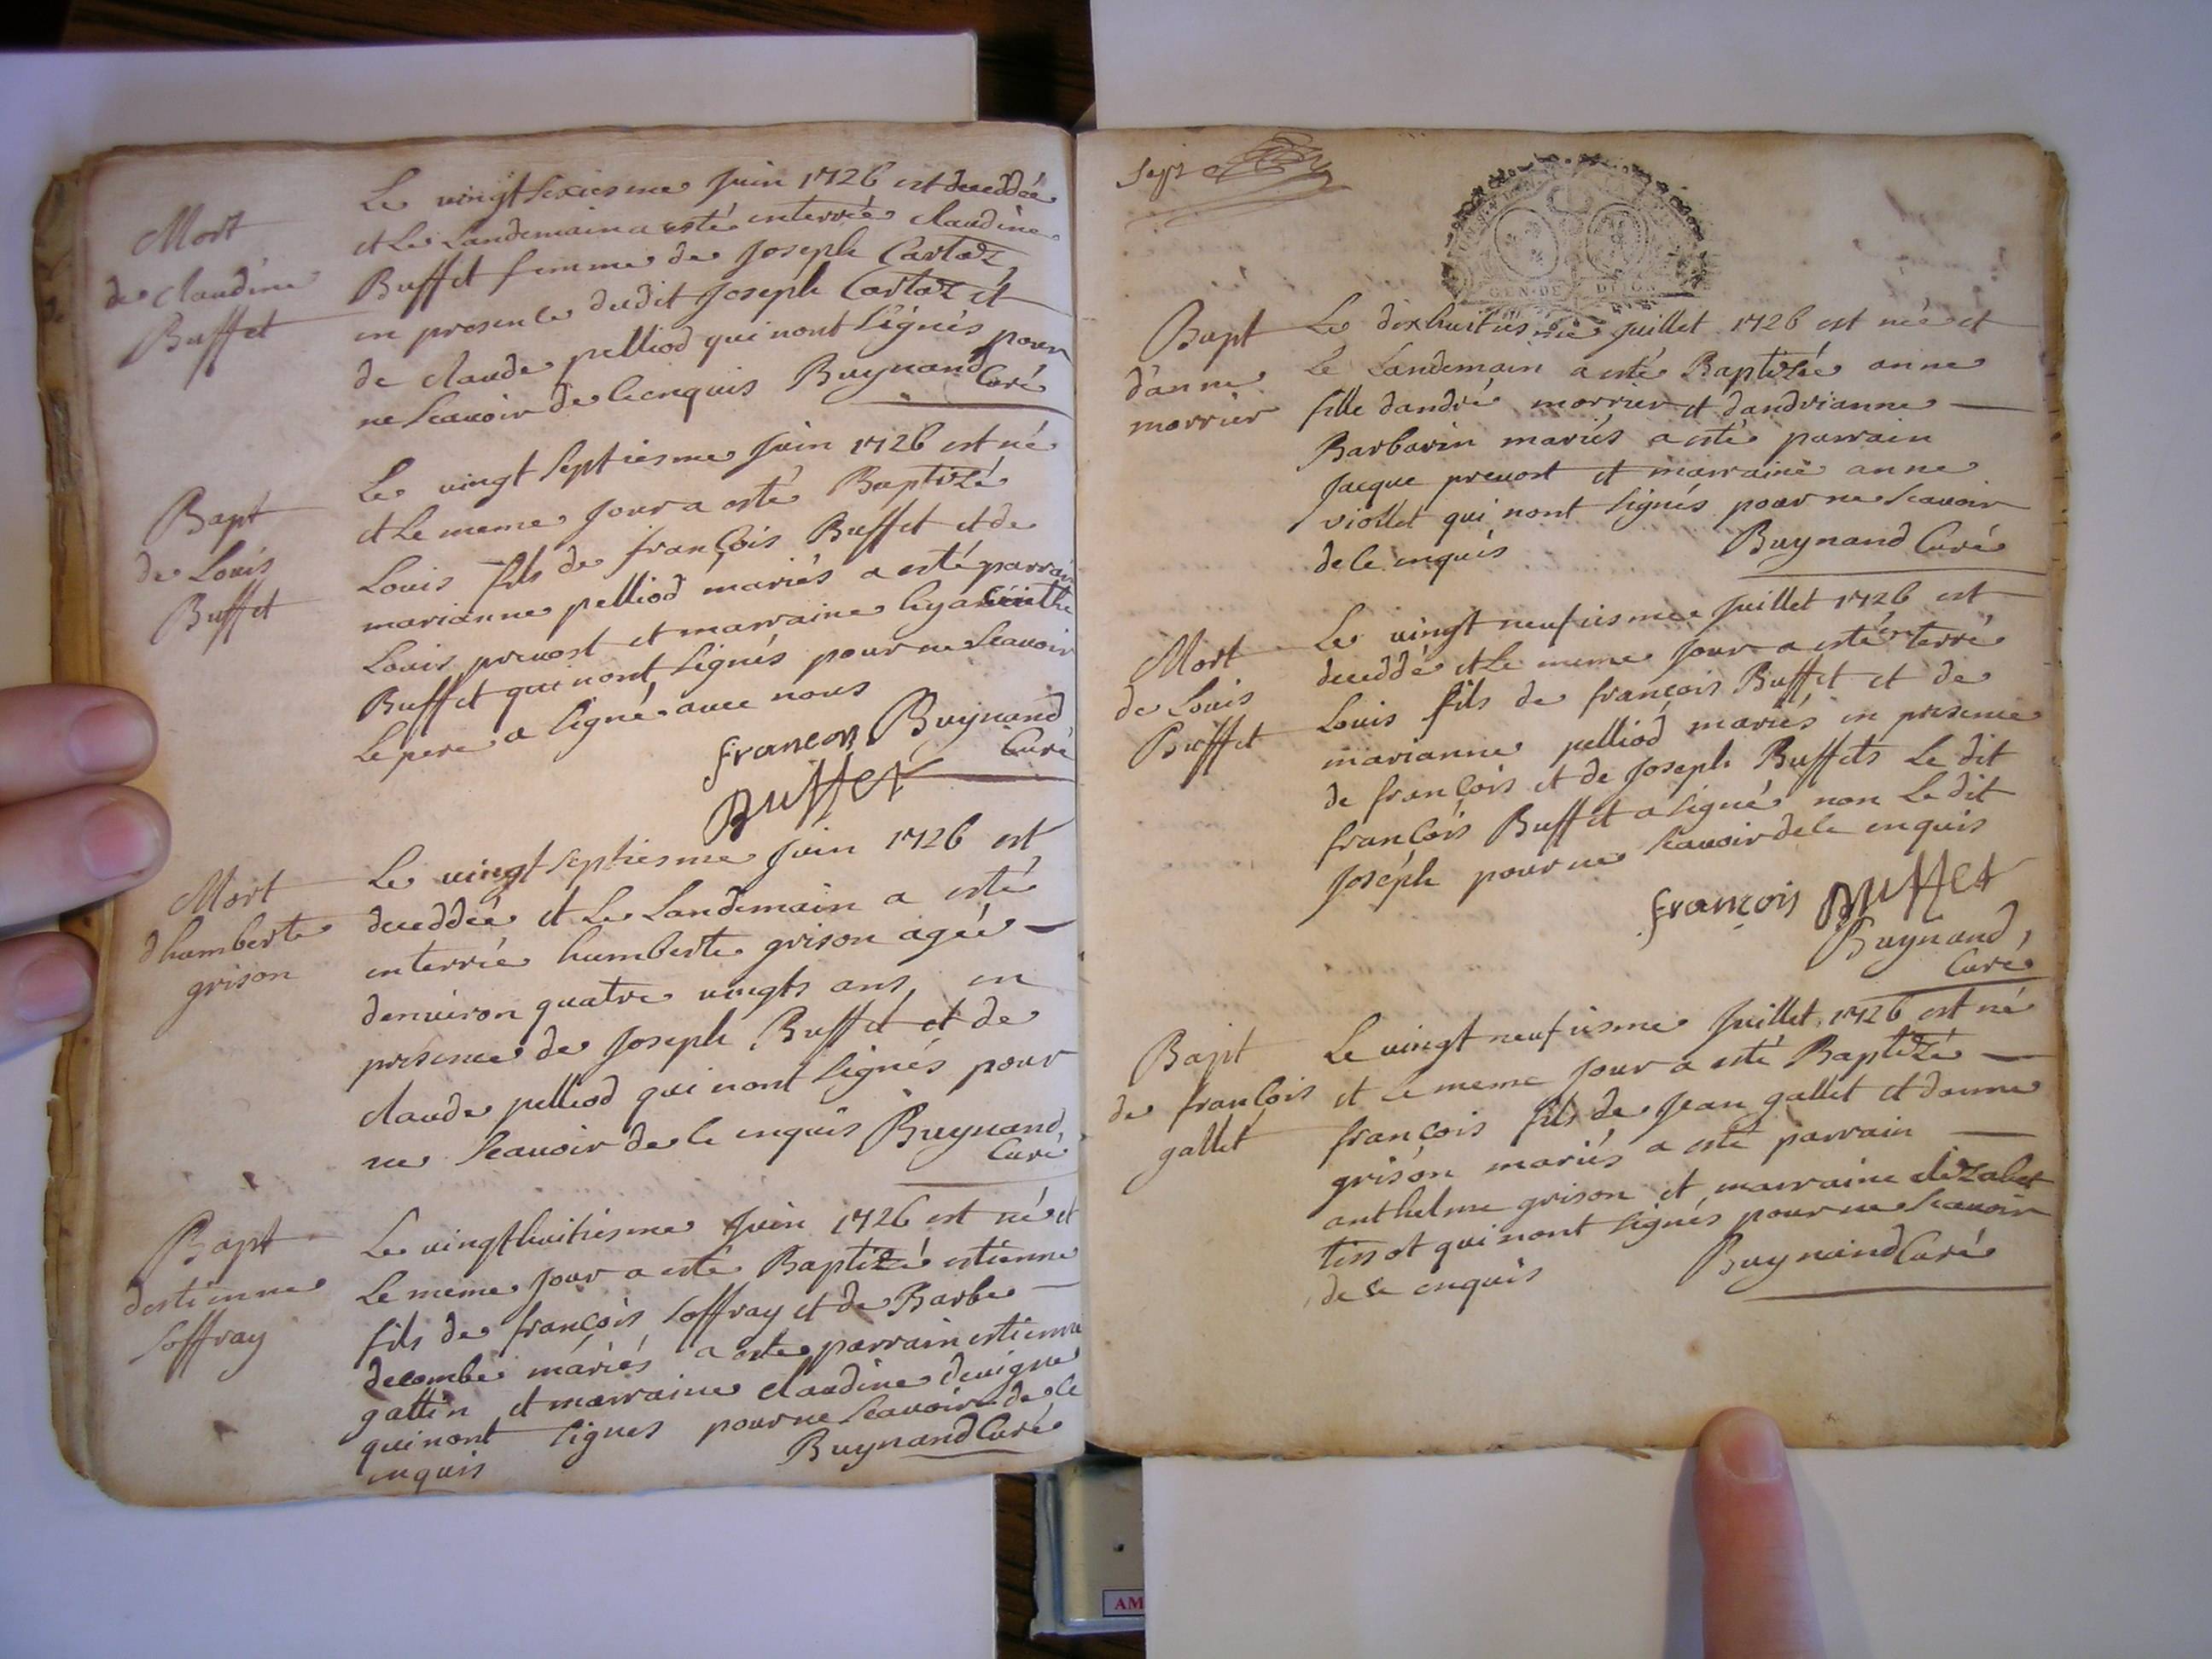 Mort
de claudine
Buffet
Le vingt sexiesme Juin 1726 est deceddée
et Le Landemain a esté enterrée claudine
Buffet femme de Joseph Cartaz
en presence dudit Joseph Cartaz et
de claude pelliod qui nont signés pour
ne scavoir de ce enquis Buynand
Curé
Bapt
de Louis
Buffet
Le vingt septiesme Juin 1726 est né
et Le meme Jour a esté Baptizé
Louis fils de françois Buffet et de
marianne pelliod mariés a esté parrain
Louis prevost et marraine hyacinthe
Buffet qui nont signés pour ne scavoir
Le pere a signé avec nous
francois Buynand
Curé
Buffet
Mort
dhumberte
grison
Le vingt septiesme Juin 1726 est
deceddée et Le Landemain a esté
enterrée humberte grison agée
denviron quatre vingts ans, en
presence de Joseph Buffet et de
claude pelliod qui nont signés pour
ne scavoir de ce enquis Buynand
Curé
Bapt
destienne
soffray
Le vingthuitiesme Juin 1726 est né et
Le meme Jour a esté Baptizé estienne
fils de françois soffray et de Barbe
decombe mariés a esté parrain estienne
gattin et marraine claudine devigne
qui nont signes pour ne scavoir de ce
enquis Buynand Curé
Sept
GEN·DE DIJON
Bapt
danne
morrier
Le dixhuitiesme Juillet 1726 est née et
Le Landemain a esté Baptizée anne
fille dandré morrier et dandrianne
Barbarin mariés a esté parrain
Jacque prevost et marraine anne
viollet qui nont signés pour ne scavoir
de ce enquis Buynand Curé
Mort
de Louis
Buffet
Le vingt neufiesme Juillet 1726 est
deceddé et Le meme Jour a esté enterré
Louis fils de françois Buffet et de
marianne pelliod mariés en presence
de françois et de Joseph Buffets Le dit
françois Buffet a signé non Le dit
Joseph pour ne scavoir de ce enquis
françois Buffet
Buynand,
Curé
Bapt
de françois
gallet
Le vingt neufiesme Juillet, 1726 est né
et Le meme Jour a esté Baptizé
françois fils de Jean gallet et danne
grison mariés a esté parrain
anthelme grison et marraine elizabet
tissot qui nont signés pour ne scavoir
de ce enquis Buynand Curé
AM